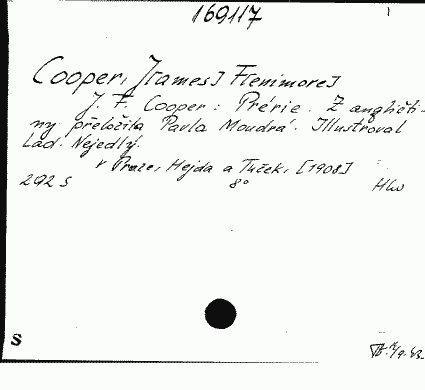 169117
Cooper, J[ames] F[enimore]
J. F. Cooper: Prérie. Z angličti-
ny přeložila Pavla Moudrá. Illustroval
Lad. Nejedlý.
v Praze, Hejda a Tuček, [1908]
292 s 8° Hlw
S